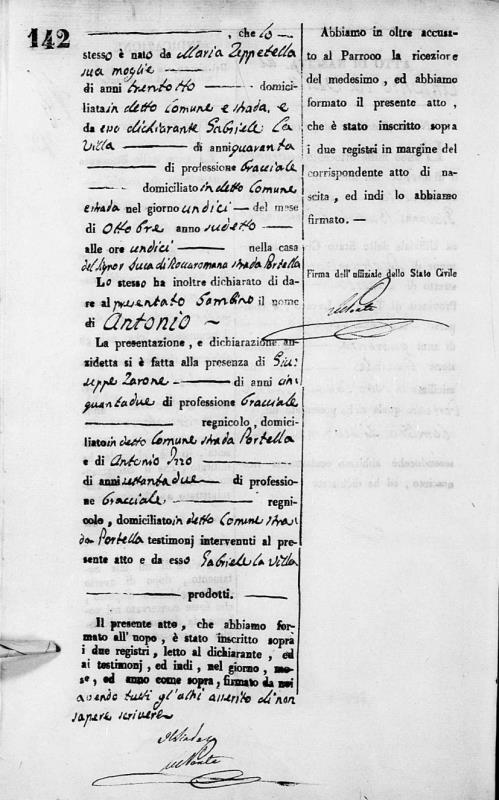 142
, che lo
stesso è nato da Maria Zeppetella
sua moglie
di anni trentotto domici-
liata in detto Comune e strada, e
da esso dichiarante Gabriele La
Villa di anni quaranta
di professione Bracciale
domiciliato in detto Comune
e strada nel giorno undici del mese
di Ottobre anno sudetto
alle ore undici nella casa
del Signor Duca di Roccaromana strada Portella
Lo stesso ha inoltre dichiarato di da-
re al presentato bambino il nome
di Antonio
La presentazione, e dichiarazione an-
zidetta si è fatta alla presenza di Giu-
seppe Zarone di anni cin
quantadue di professione Bracciale
regnicolo, domici-
liato in detto Comune strada Portella
e di Antonio Izzo
di anni settantadue di professio-
ne Bracciale regni-
colo, domiciliato in detto Comune stra-
da Portella testimonj intervenuti al pre-
sente atto e da esso Gabriele la Villa
prodotti.
Il presente atto, che abbiamo for-
mato all'uopo, è stato inscritto sopra
i due registri, letto al dichiarante, ed
ai testimonj, ed indi, nel giorno, me-
se, ed anno come sopra, firmato da noi
avendo tutti gl'altri asserito di non
sapere scrivere
Il Sindaco
Abbiamo in oltre accusa-
to al Parroco la ricezione
del medesimo, ed abbiamo
formato il presente atto,
che è stato inscritto sopra
i due registri in margine del
corrispondente atto di na-
scita, ed indi lo abbiamo
firmato.
Firma dell' uffiziale dello Stato Civile